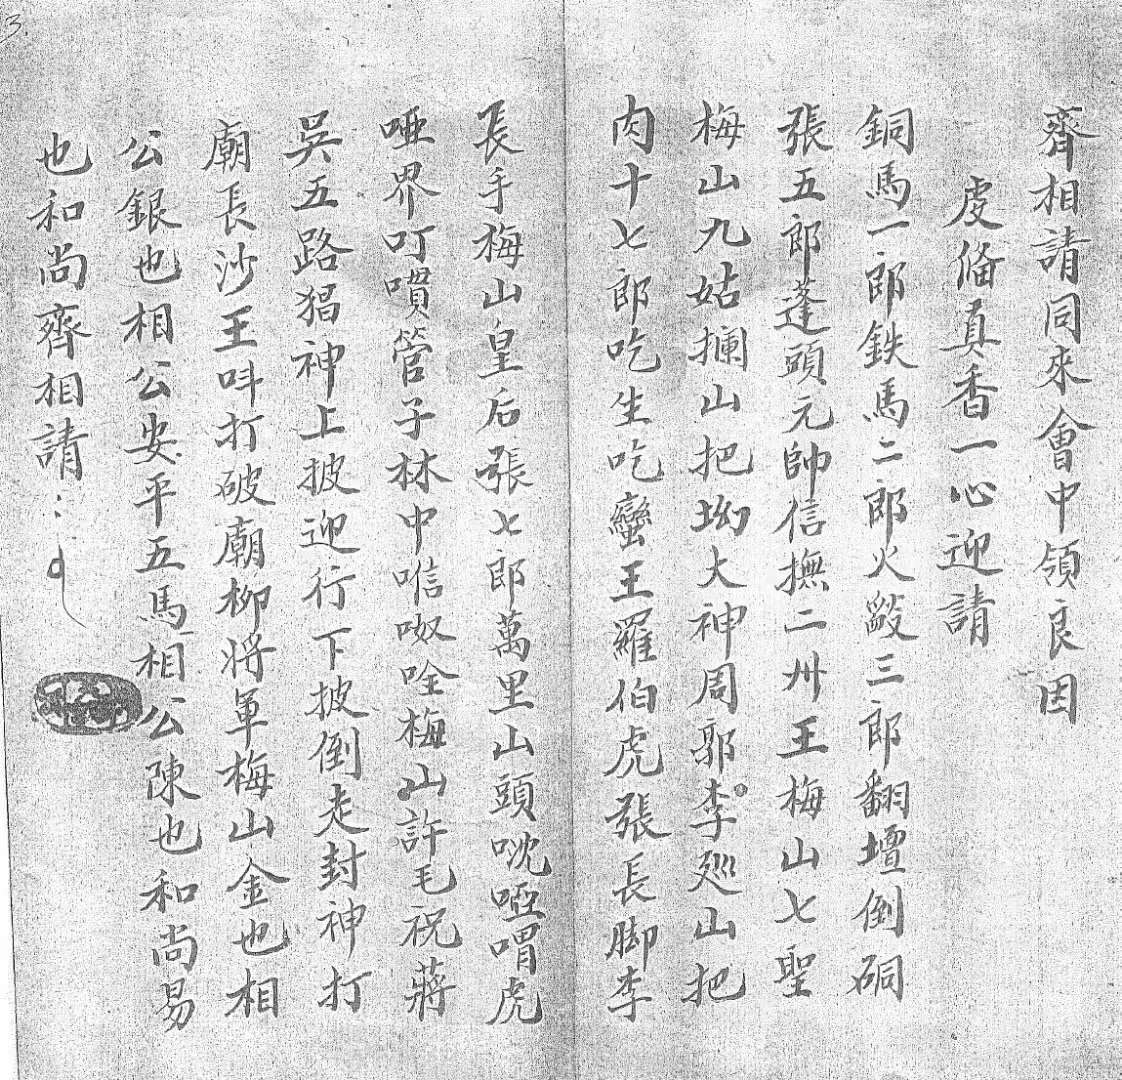 齊相請同來會中領良因
虔俻真香一心迎請
銅馬一郎鉄馬二郎火毆三郎翻壇倒硐
張五郎蓬頭元帥信撫二州王梅山七聖
梅山九姑攔山把坳大神周郭李廵山把
肉十七郎吃生吃蠻王羅伯虎張長脚李
長手梅山皇后張七郎萬里山頭啞喟虎
啞界叮嘪管子林中唁呶唑梅山許毛祝蔣
吳五路猖神上披迎行下披倒走封神打
廟長沙王呌打破廟柳將軍梅山金也相
公銀也相公安平五馬相公陳也和尚易
也和尚齊相請
3.